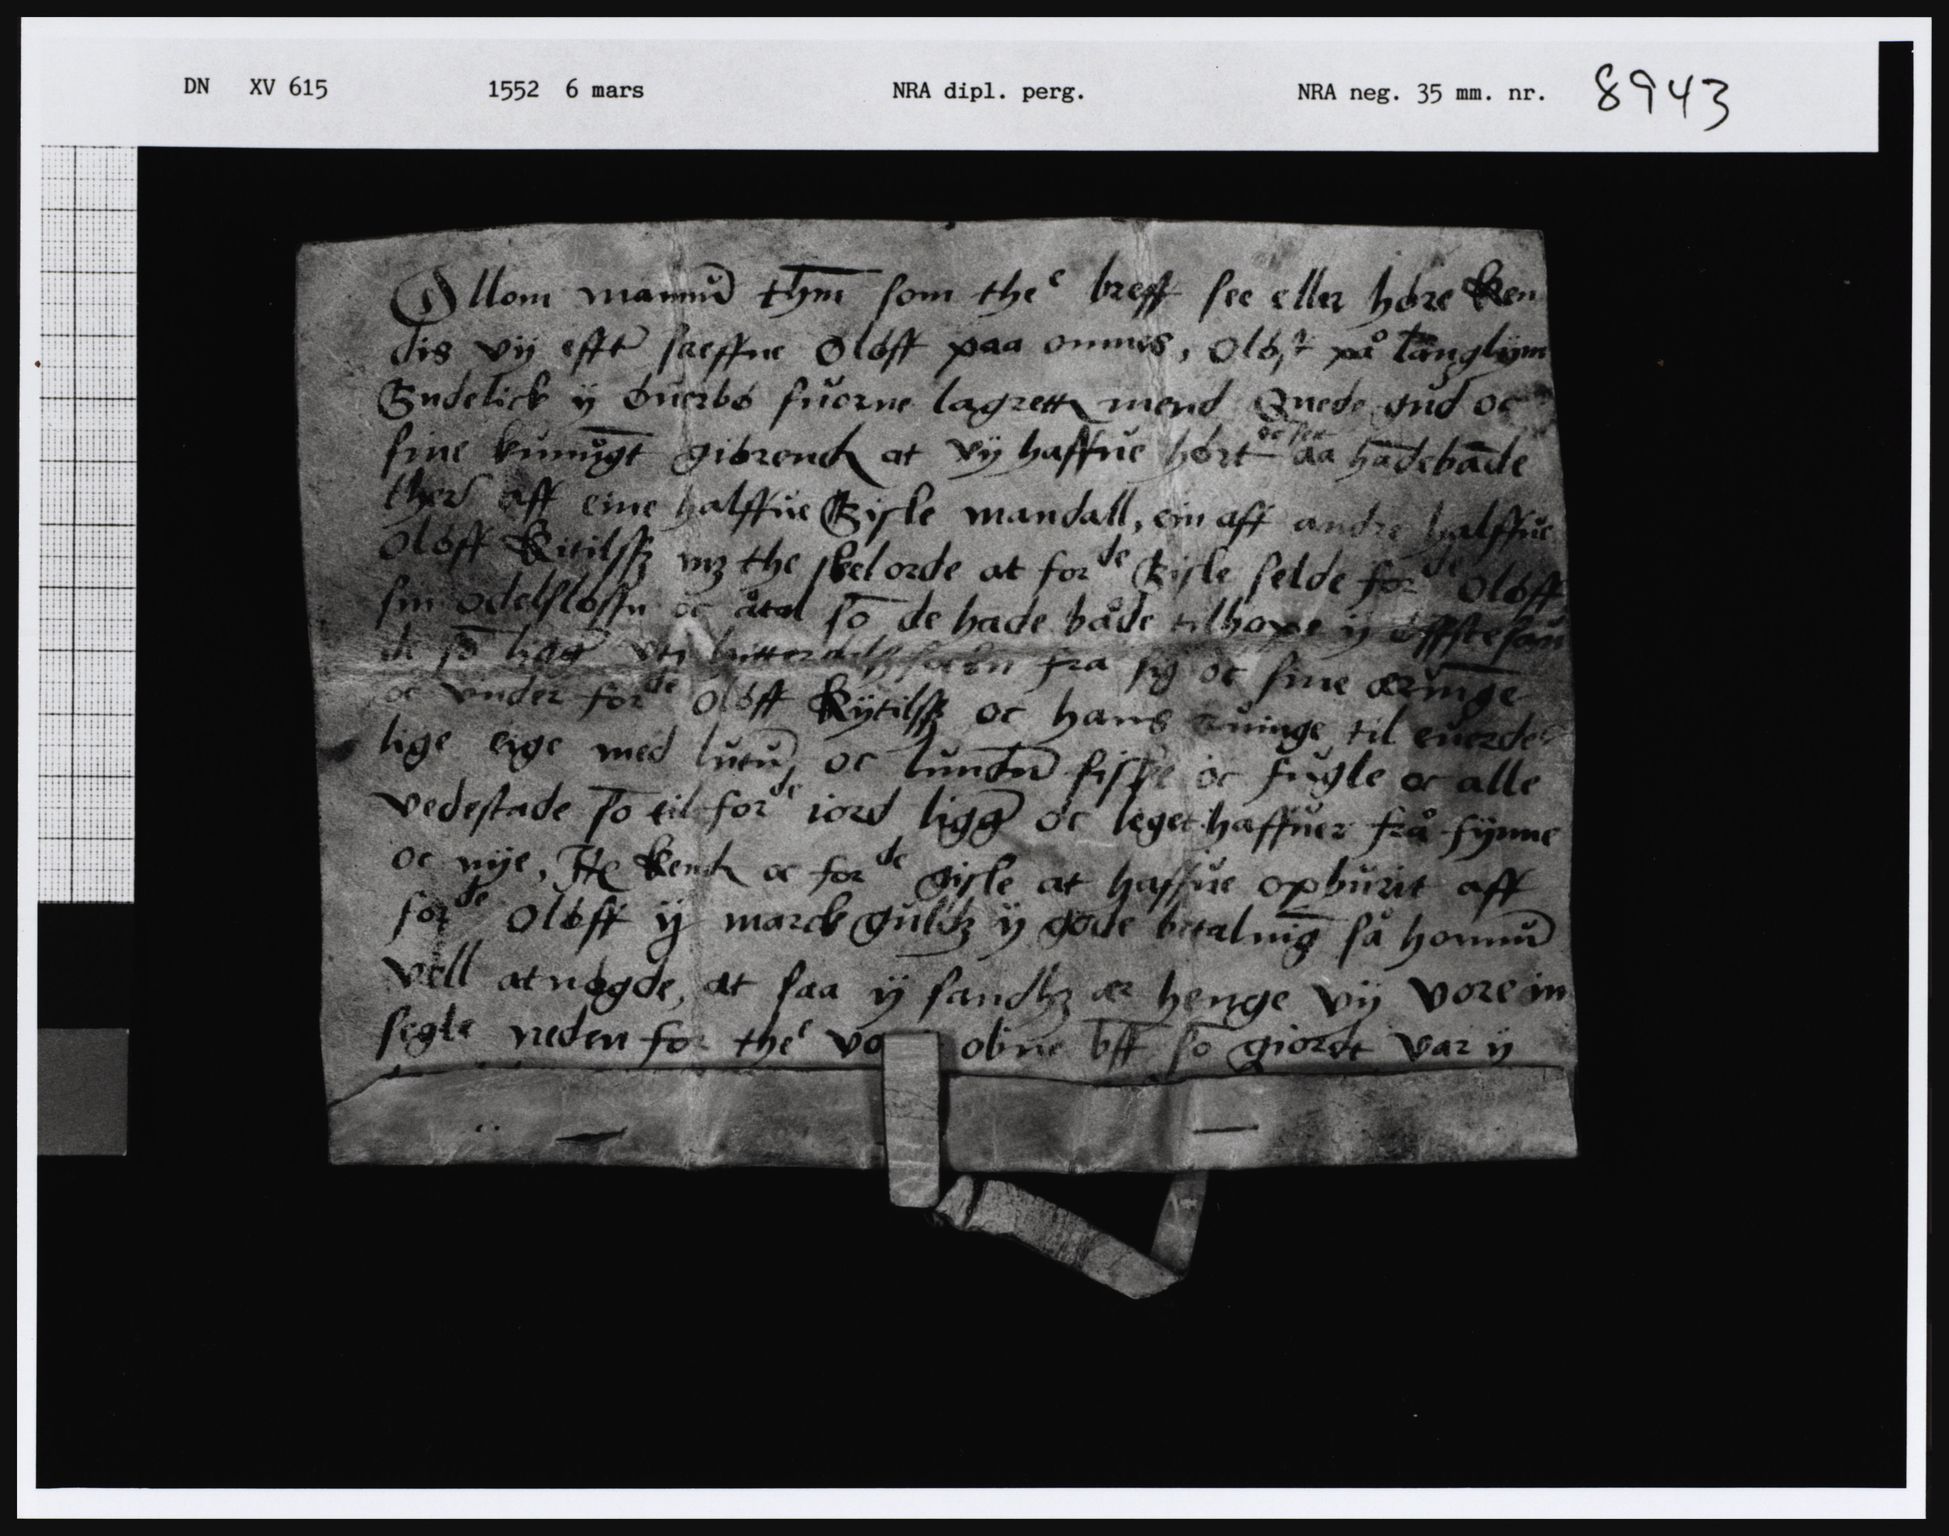 DN XV 615 1552 6 mars NRA dipl. perg. NRA neg. 35 mm. nr. 8943
Ollom mannū thm̄ som the breff see eller høre Ken
dis vij efft screffne Oløff paa ommes, Oløff på langlijm
Gudelick ij suorne lagrett mend Quede gud oc
sine kunnūgt giørend at vij haffue hørt oc seet aa hādebāde
ther aff eine halffue Gisle mandall, ein aff andre halffue
Oløff Kitilss mz the skelorde at forde Gisle selde forde Oløff
sin odelsløssn oc åtal so̅ de hade både tilhope ij
so̅ ligg hitterdals sokn fra sig oc sine ærūinge
oc vnder forde Oløff Kijtilss oc hans ruinge til euerde
lige eige med lutū oc lundū fiske oc fugle oc alle
vedestade so̅ til forde iord ligg oc leget haffuer frå fijrnne
oc nije, Kend oc forde gisle at haffue opburit aff
forde Oløff ij marck guldz ij gode betalnīg så honnū
vell atnøgde, at saa ij sandhz ær henge vij vore in
segle neden for the vo obne bff so̅ giordt var ij